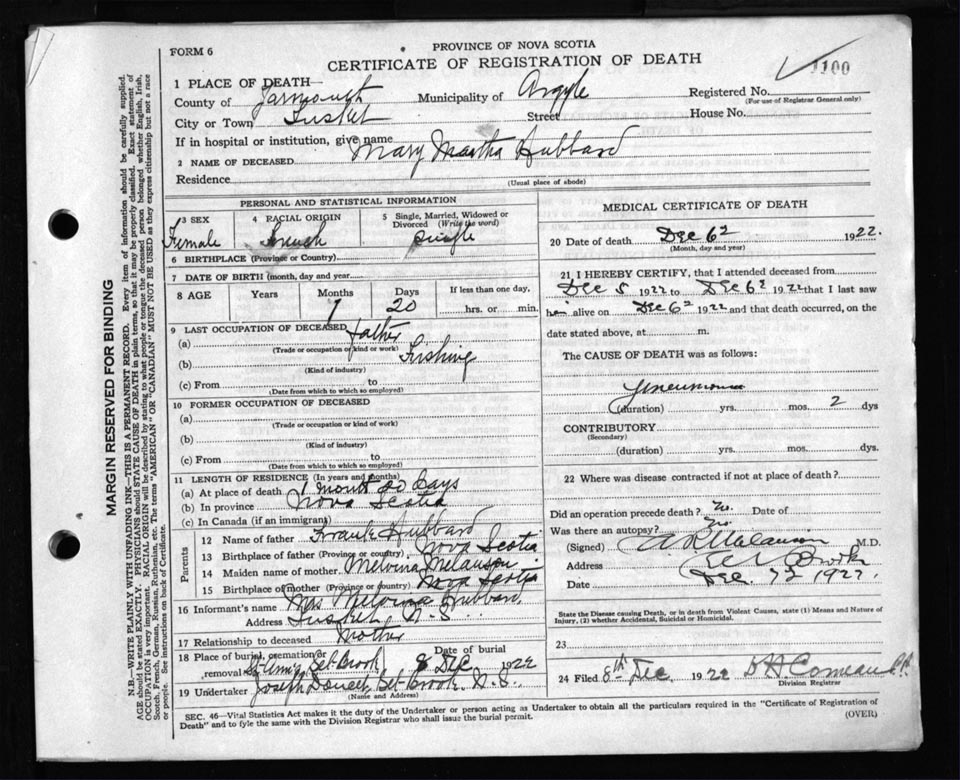 FORM 6
PROVINCE OF NOVA SCOTIA
CERTIFICATE OF REGISTRATION OF DEATH
1100
1 PLACE OF DEATH—
County of Yarmouth Municipality of Argyle Registered No.
(For use of Registrar General only)
City or Town Tusket Street House No.
If in hospital or institution, give name
2 NAME OF DECEASED Mary Martha Hubbard
Residence
(Usual place of abode)
PERSONAL AND STATISTICAL INFORMATION
3 SEX Female
4 RACIAL ORIGIN French
5 Single, Married, Widowed or Divorced (Write the word) single
6 BIRTHPLACE (Province or Country)
7 DATE OF BIRTH (month, day and year)
8 AGE Years Months 1 Days 20 If less than one day, hrs. or min.
9 LAST OCCUPATION OF DECEASED
(a) father
(Trade or occupation or kind of work)
(b) Fishing
(Kind of industry)
(c) From to
(Date from which to which so employed)
10 FORMER OCCUPATION OF DECEASED
(a)
(Trade or occupation or kind of work)
(b)
(Kind of industry)
(c) From to
(Date from which to which so employed)
11 LENGTH OF RESIDENCE (In years and months)
(a) At place of death 1 month 20 Days
(b) In province Nova Scotia
(c) In Canada (if an immigrant)
Parents
12 Name of father Frank Hubbard
13 Birthplace of father (Province or country) Nova Scotia
14 Maiden name of mother Melvina Melanson
15 Birthplace of mother (Province or country) Nova Scotia
16 Informant's name Mrs Melvina Hubbard
Address Tusket N.S.
17 Relationship to deceased Mother
18 Place of burial, cremation or removal Bel-Brook Date of burial 8 Dec 1922
19 Undertaker Joseph Doucet, Bel-Brook. N.S.
(Name and Address)
MEDICAL CERTIFICATE OF DEATH
20 Date of death Dec 6 1922.
(Month, day and year)
21 I HEREBY CERTIFY, that I attended deceased from
Dec 5 1922 to Dec 6 1922 that I last saw
h alive on Dec 6 1922 and that death occurred, on the
date stated above, at m.
The CAUSE OF DEATH was as follows:
Pneumonia
(duration) yrs. mos. 2 dys
CONTRIBUTORY
(Secondary)
(duration) yrs. mos. dys.
22 Where was disease contracted if not at place of death?
Did an operation precede death? No. Date of
Was there an autopsy? No
(Signed) Melanson M.D.
Address Brook
Date Dec. 7 1922.
State the Disease causing Death, or in death from Violent Causes, state (1) Means and Nature of Injury, (2) whether Accidental, Suicidal or Homicidal.
23
24 Filed 8th Dec, 1922 Comeau
Division Registrar
SEC. 46—Vital Statistics Act makes it the duty of the Undertaker or person acting as Undertaker to obtain all the particulars required in the "Certificate of Registration of
Death" and to fyle the same with the Division Registrar who shall issue the burial permit.
(OVER)
MARGIN RESERVED FOR BINDING
N.B.—WRITE PLAINLY WITH UNFADING INK—THIS IS A PERMANENT RECORD. Every item of information should be carefully supplied.
AGE should be stated EXACTLY. PHYSICIANS should STATE CAUSE OF DEATH in plain terms, so that it may be properly classified. Exact statement of
OCCUPATION is very important. RACIAL ORIGIN will be described by stating to what people or tongue the deceased person belonged whether English, Irish,
Scotch, French, German, Russian, Ruthenian, etc. The terms "AMERICAN" or "CANADIAN" MUST NOT BE USED as they express citizenship but not a race
or people. See instructions on back of Certificate.